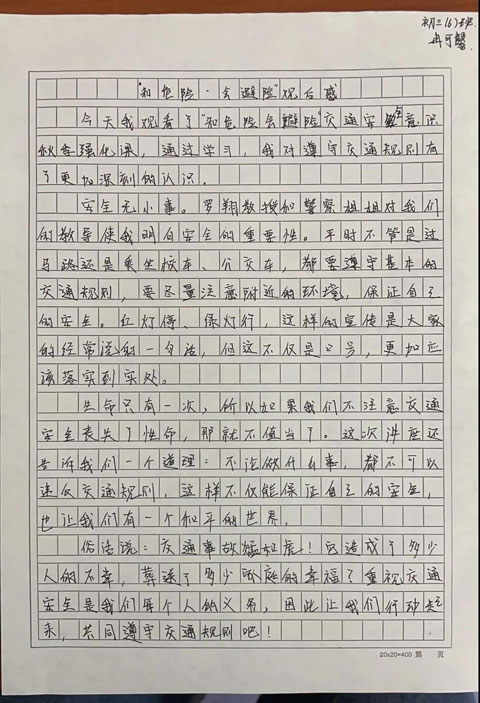 初三(6)班
冉可馨
“知危险·会避险”观后感
今天我观看了“知危险会避险”交通安全意识
秋季强化课，通过学习，我对遵守交通规则有
了更加深刻的认识。
安全无小事。罗翔教授和警察姐姐对我们
的教导使我明白安全的重要性。平时不管是过
马路还是乘坐校车、公交车，都要遵守基本的
交通规则，要尽量注意附近的环境，保证自己
的安全。红灯停、绿灯行，这样的宣传是大家
的经常说的一句话，但这不仅是口号，更加应
该落实到实处。
生命只有一次，所以如果我们不注意交通
安全丧失了性命，那就不值当了。这次讲座还
告诉我们一个道理：不论做什么事，都不可以
违反交通规则，这样不仅能保证自己的安全，
也让我们有一个和平的世界。
俗话说：交通事故猛如虎！它造成了多少
人的不幸，葬送了多少家庭的幸福？重视交通
安全是我们每个人的义务，因此让我们行动起
来，共同遵守交通规则吧！
20x20=400 第 页